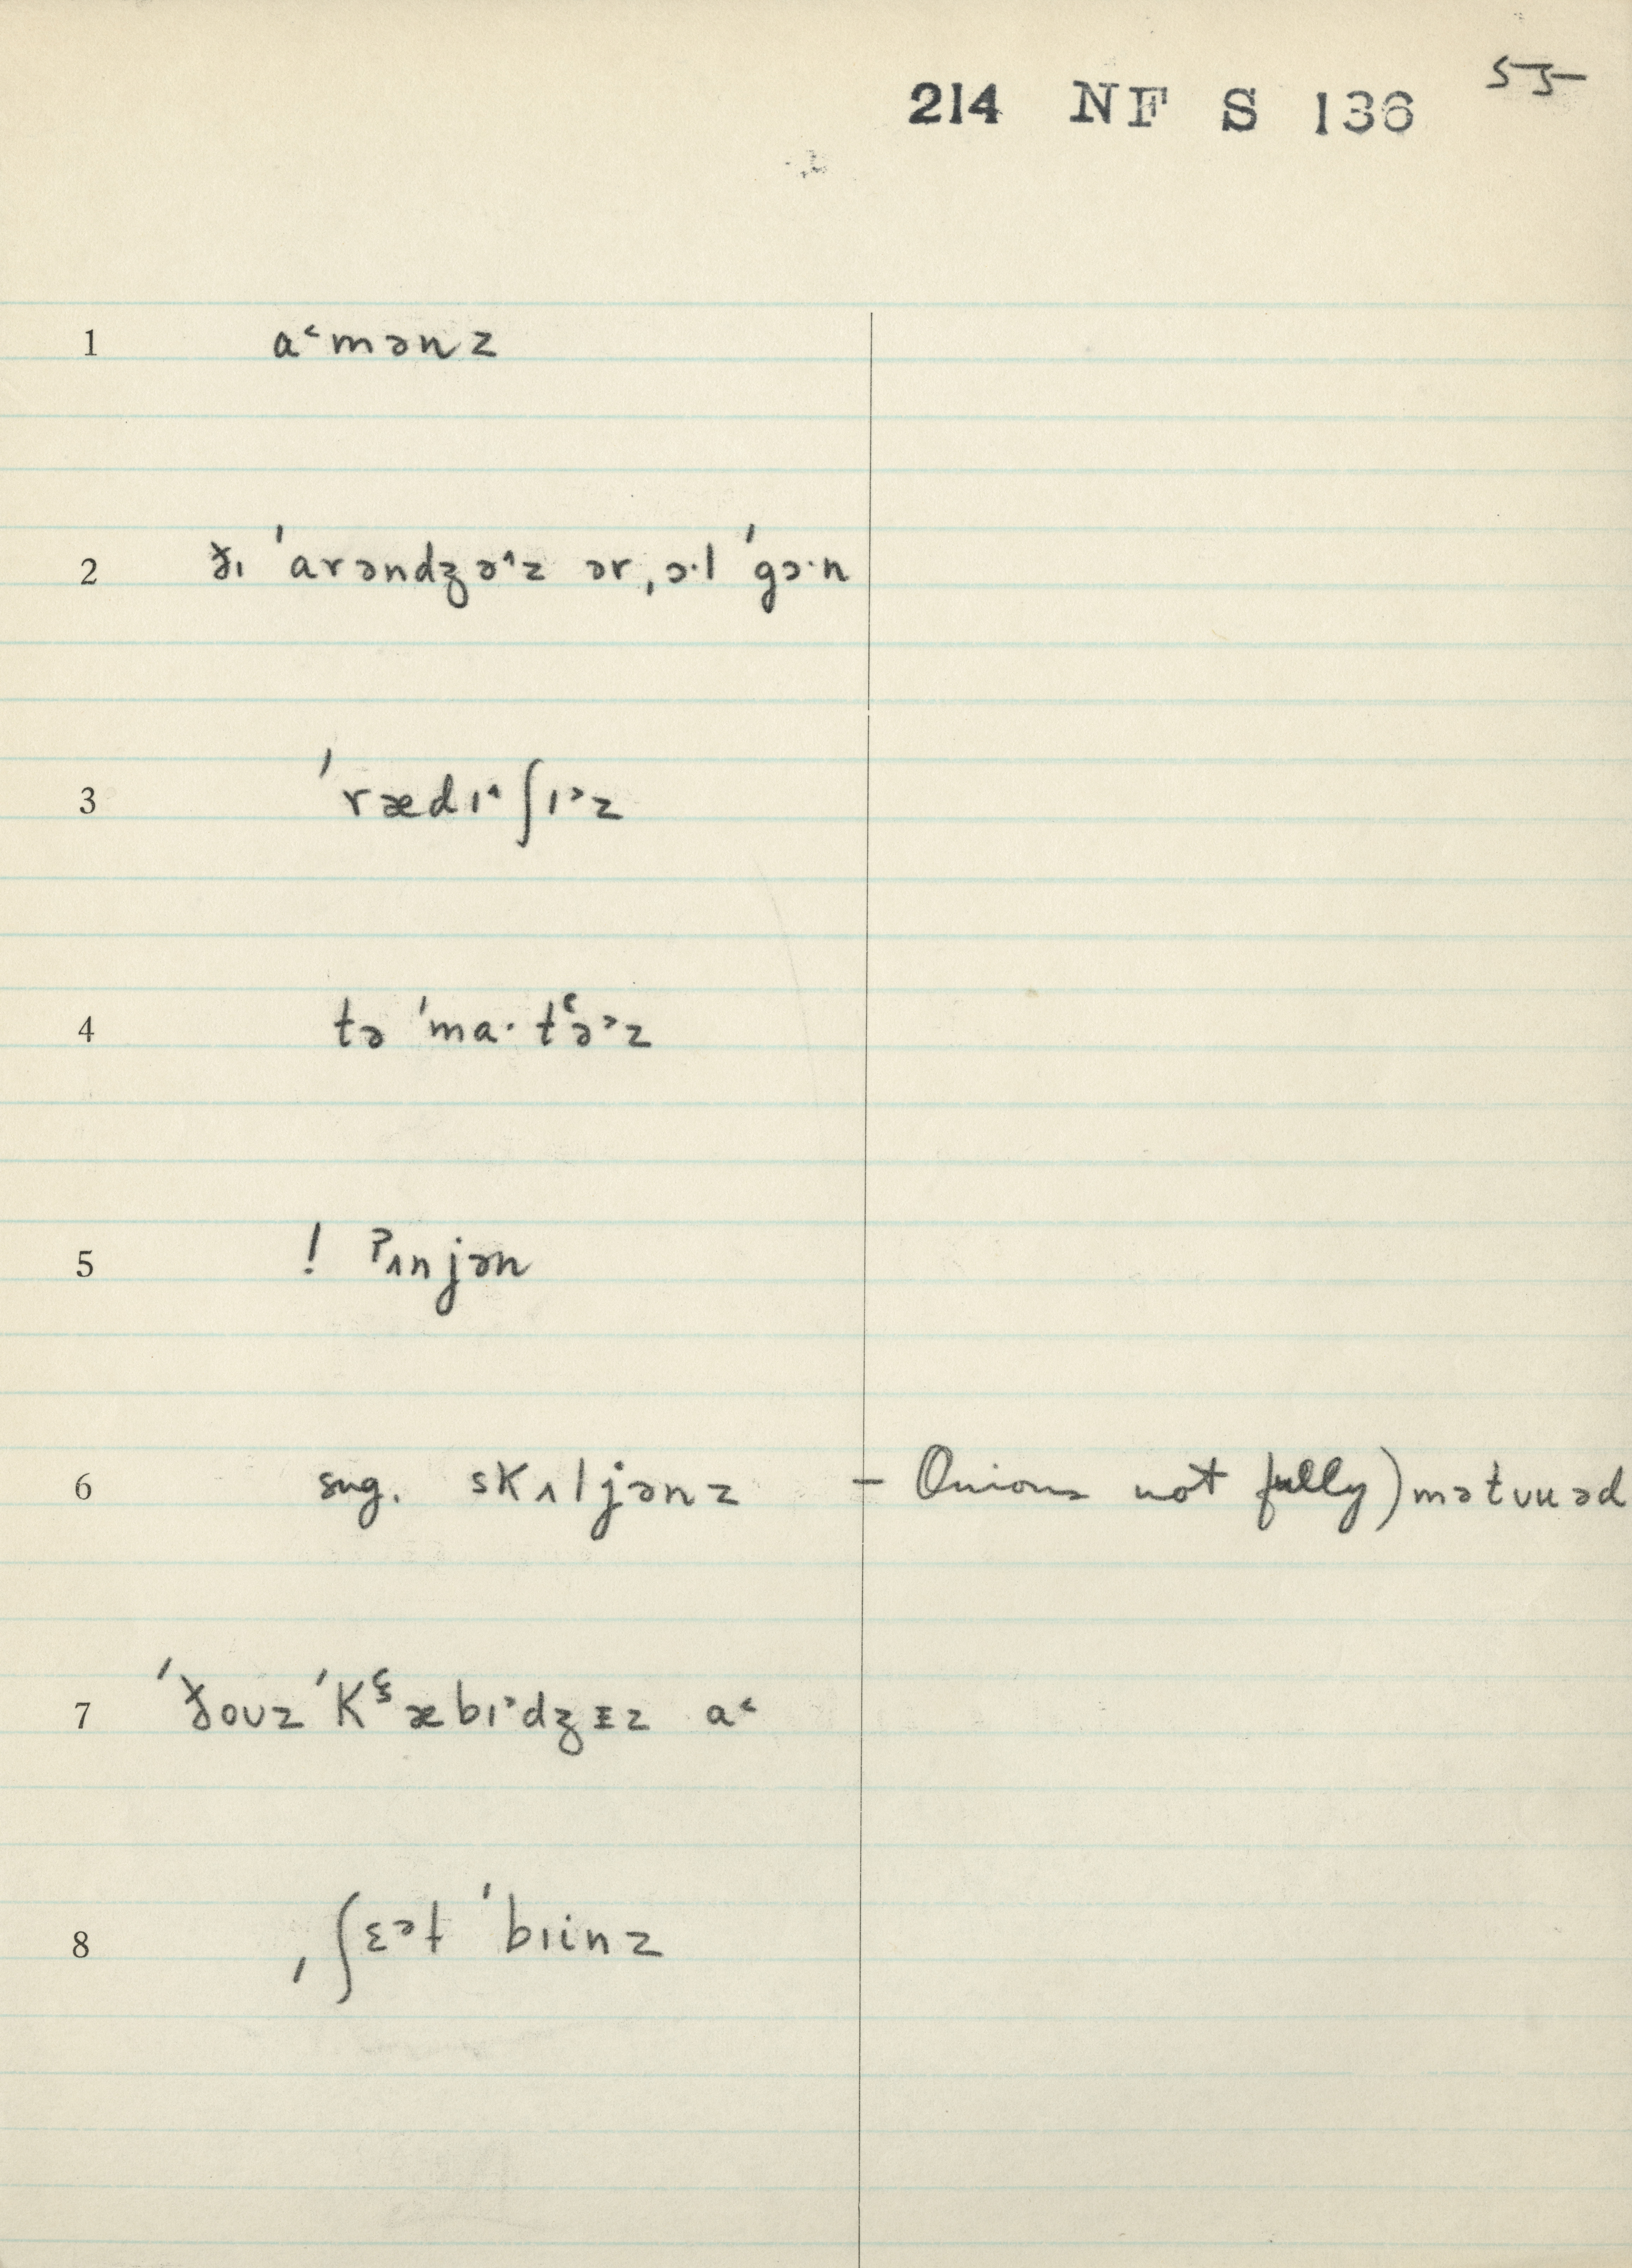 214 NF S 136 55
1 a˂mənz
2 ðɪ ˈarəndʒə˄z ər ˌɔ·l ˈgɔ·n
3 ˈrædɪ˄ʃɪ˃z
4 tə ˈma·tʻə˃z
5 ! ʔʌnjən
6 sug. skʌljənz – Onions not fully) mətʊuəd
7 ˈðoʊz ˈkʻæbɪ˃dʒɪz a˂
8 ˌʃɛ˃t ˈbɪinz